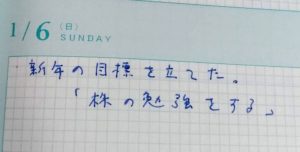 1/6 (日)
SUNDAY
新年の目標を立てた。
「株の勉強をする」